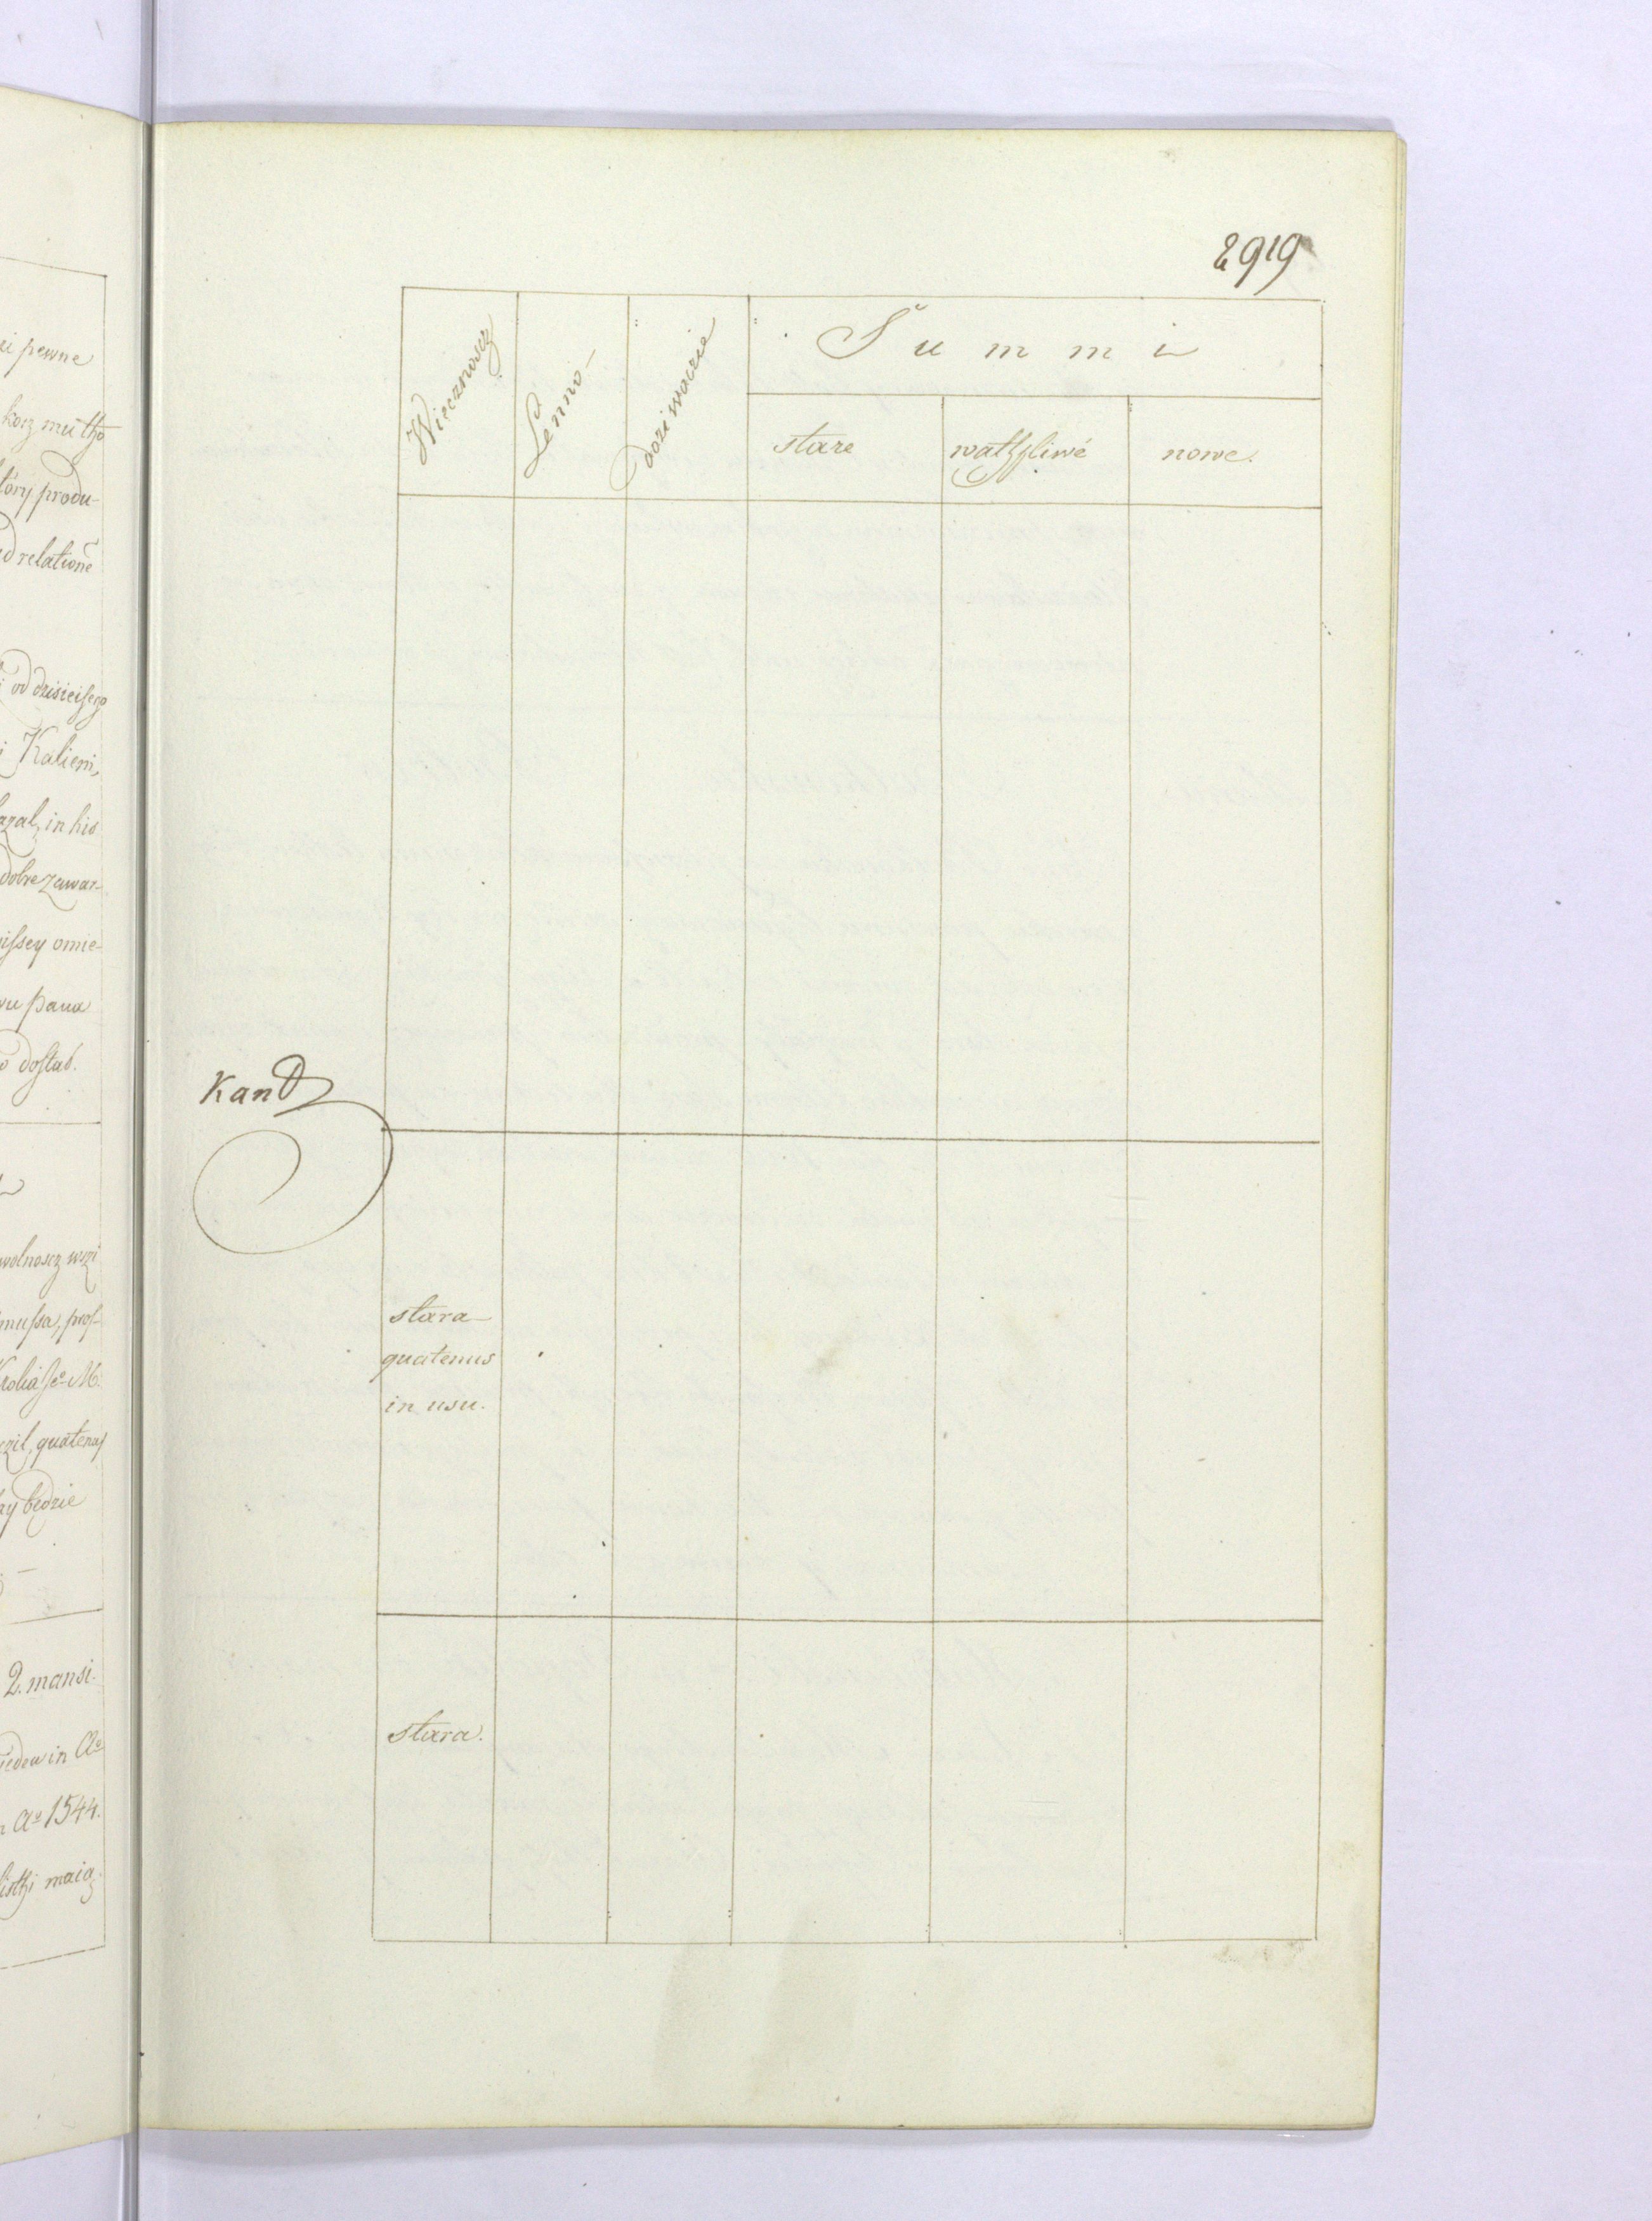 zi pewne
kosz mu tho
tóry produ-
ad relationē
i od dzisieiszego
i Kalieni,
azal, in his
dobre zawar-
issey omie-
wu pana
dostać.
wolnoscz wszi
mussa, pros-
Krolia Jeº M.
czil, quatenus
rzy będzie
2. mansi.
ieden in Aº
Aº 1544.
listhi maią.
2919
Wiecznoscz
Lenno-
doziwoczie
Summi
stare
wathpliwé
nowe.
Kand
stara
quatenus
in usu.
stara.